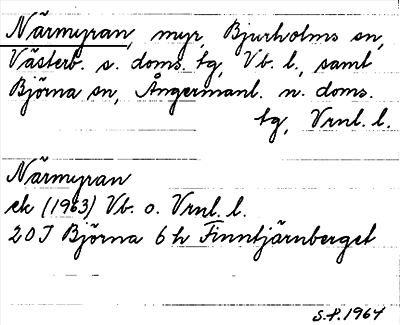 Närmyran, myr, Bjurholms sn,
Västerb. s. doms. tg, Vb. l., samt
Björna sn, Ångermanl. n. doms.
tg, Vrnl. l.
Närmyran
ek (1963) Vb. o. Vrnl. l.
20J Björna 6h Finntjärnberget
S.F. 1964